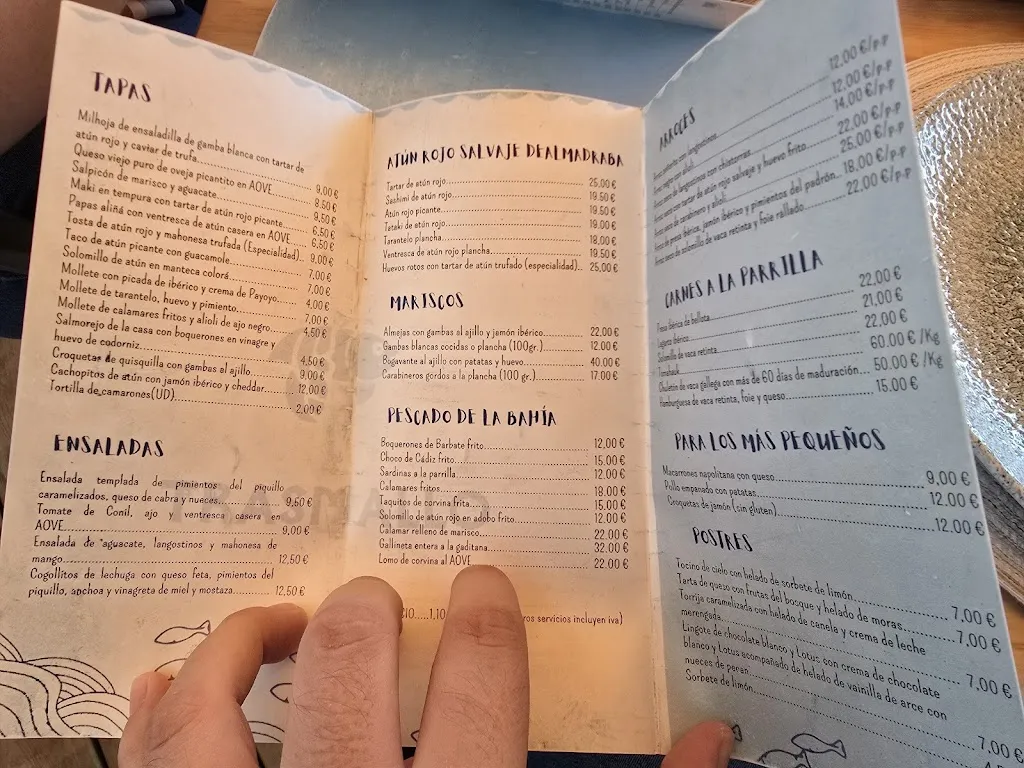 TAPAS
Milhoja de ensaladilla de gamba blanca con tartar de
atún rojo y caviar de trufa 9,00 €
Queso viejo puro de oveja picantito en AOVE 8,50 €
Salpicón de marisco y aguacate 9,50 €
Maki en tempura con tartar de atún rojo picante 6,50 €
Papas aliñá con ventresca de atún casera en AOVE 6,50 €
Tosta de atún rojo y mahonesa trufada (Especialidad) 9,00 €
Taco de atún picante con guacamole 7,00 €
Solomillo de atún en manteca colorá 7,00 €
Mollete con picada de ibérico y crema de Payoyo 4,00 €
Mollete de tarantelo, huevo y pimiento 7,00 €
Mollete de calamares fritos y alioli de ajo negro 4,50 €
Salmorejo de la casa con boquerones en vinagre y
huevo de codorniz 4,50 €
Croquetas de quisquilla con gambas al ajillo 9,00 €
Cachopitos de atún con jamón ibérico y cheddar 12,00 €
Tortilla de camarones(UD) 2,00 €
ENSALADAS
Ensalada templada de pimientos del piquillo
caramelizados, queso de cabra y nueces 9,50 €
Tomate de Conil, ajo y ventresca casera en
AOVE 9,00 €
Ensalada de aguacate, langostinos y mahonesa de
mango 12,50 €
Cogollitos de lechuga con queso feta, pimientos del
piquillo, anchoa y vinagreta de miel y mostaza 12,50 €
ATÚN ROJO SALVAJE DEALMADRABA
Tartar de atún rojo 25,00 €
Sashimi de atún rojo 19,50 €
Atún rojo picante 19,50 €
Tataki de atún rojo 19,00 €
Tarantelo plancha 18,00 €
Ventresca de atún rojo plancha 19,50 €
Huevos rotos con tartar de atún trufado (especialidad) 25,00 €
MARISCOS
Almejas con gambas al ajillo y jamón ibérico 22,00 €
Gambas blancas cocidas o plancha (100gr.) 12,00 €
Bogavante al ajillo con patatas y huevo 40,00 €
Carabineros gordos a la plancha (100 gr.) 17,00 €
PESCADO DE LA BAHÍA
Boquerones de Barbate frito 12,00 €
Choco de Cádiz frito 15,00 €
Sardinas a la parrilla 12,00 €
Calamares fritos 18,00 €
Taquitos de corvina frita 15,00 €
Solomillo de atún rojo en adobo frito 12,00 €
Calamar relleno de marisco 22,00 €
Gallineta entera a la gaditana 32,00 €
Lomo de corvina al AOVE 22,00 €
1,10
servicios incluyen iva)
ARROCES
langostinos 12,00 €/p.p
alioli 12,00 €/p.p
de langostinos con chistorras 14,00 €/p.p
con tartar de atún rojo salvaje y huevo frito 22,00 €/p.p
de carabinero y alioli 25,00 €/p.p
de presa ibérica, jamón ibérico y pimientos del padrón 18,00 €/p.p
de solomillo de vaca retinta y foie rallado 22,00 €/p.p
CARNES A LA PARRILLA
Presa ibérica de bellota 22,00 €
Lagarto ibérico 21,00 €
Solomillo de vaca retinta 22,00 €
Tomahawk 60,00 €/Kg
Chuletón de vaca gallega con más de 60 días de maduración 50,00 €/Kg
Hamburguesa de vaca retinta, foie y queso 15,00 €
PARA LOS MÁS PEQUEÑOS
Macarrones napolitana con queso 9,00 €
Pollo empanado con patatas 12,00 €
Croquetas de jamón (sin gluten) 12,00 €
POSTRES
Tocino de cielo con helado de sorbete de limón 7,00 €
Tarta de queso con frutas del bosque y helado de moras 7,00 €
Torrija caramelizada con helado de canela y crema de leche
merengada 7,00 €
Lingote de chocolate blanco y Lotus con crema de chocolate
blanco y Lotus acompañado de helado de vainilla de arce con
nueces de pecan 7,00 €
Sorbete de limón